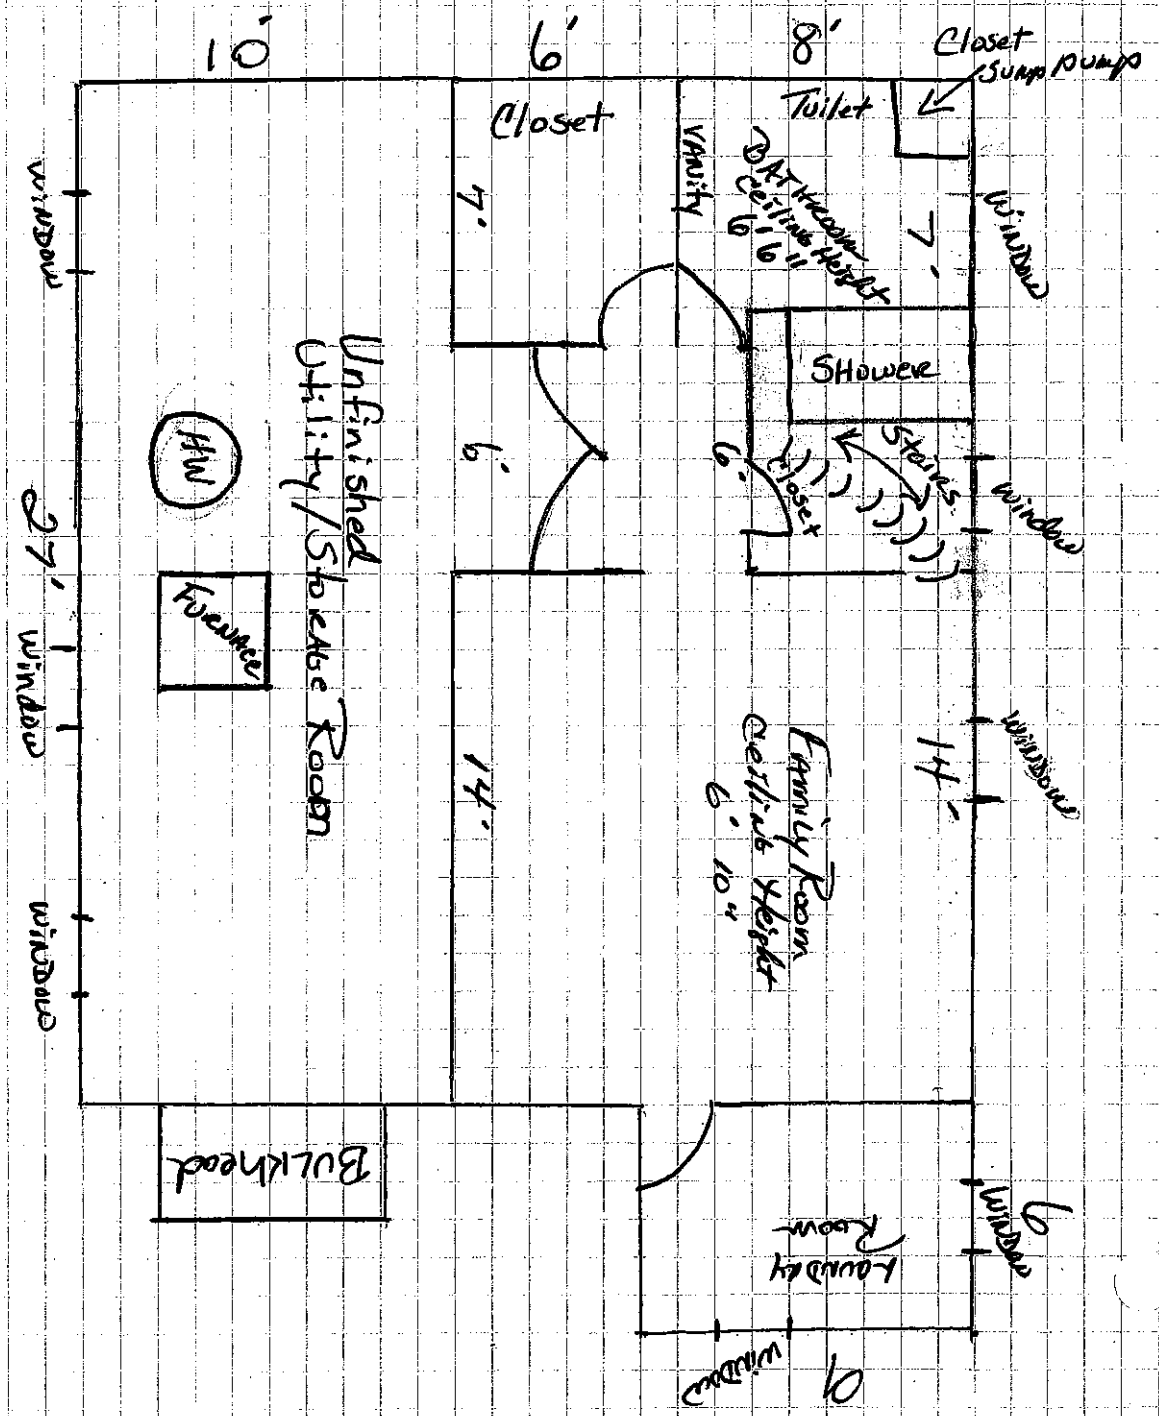 10'
6'
8'
Closet
Sump Pump
Closet
Tuilet
VANity
BATHROOM
Ceiling Height
6' 6"
7'
7'
WINDOW
WINDOW
SHOWER
Stairs
Closet
6'
6'
Window
HW
Unfinished
Utility/Storage Room
27'
FURNACE
Window
WINDOW
14'
14'
Family Room
Ceiling Height
6' 10"
WINDOW
BULKhead
LAUNDRY
ROOM
WINDOW
6
WINDOW
9